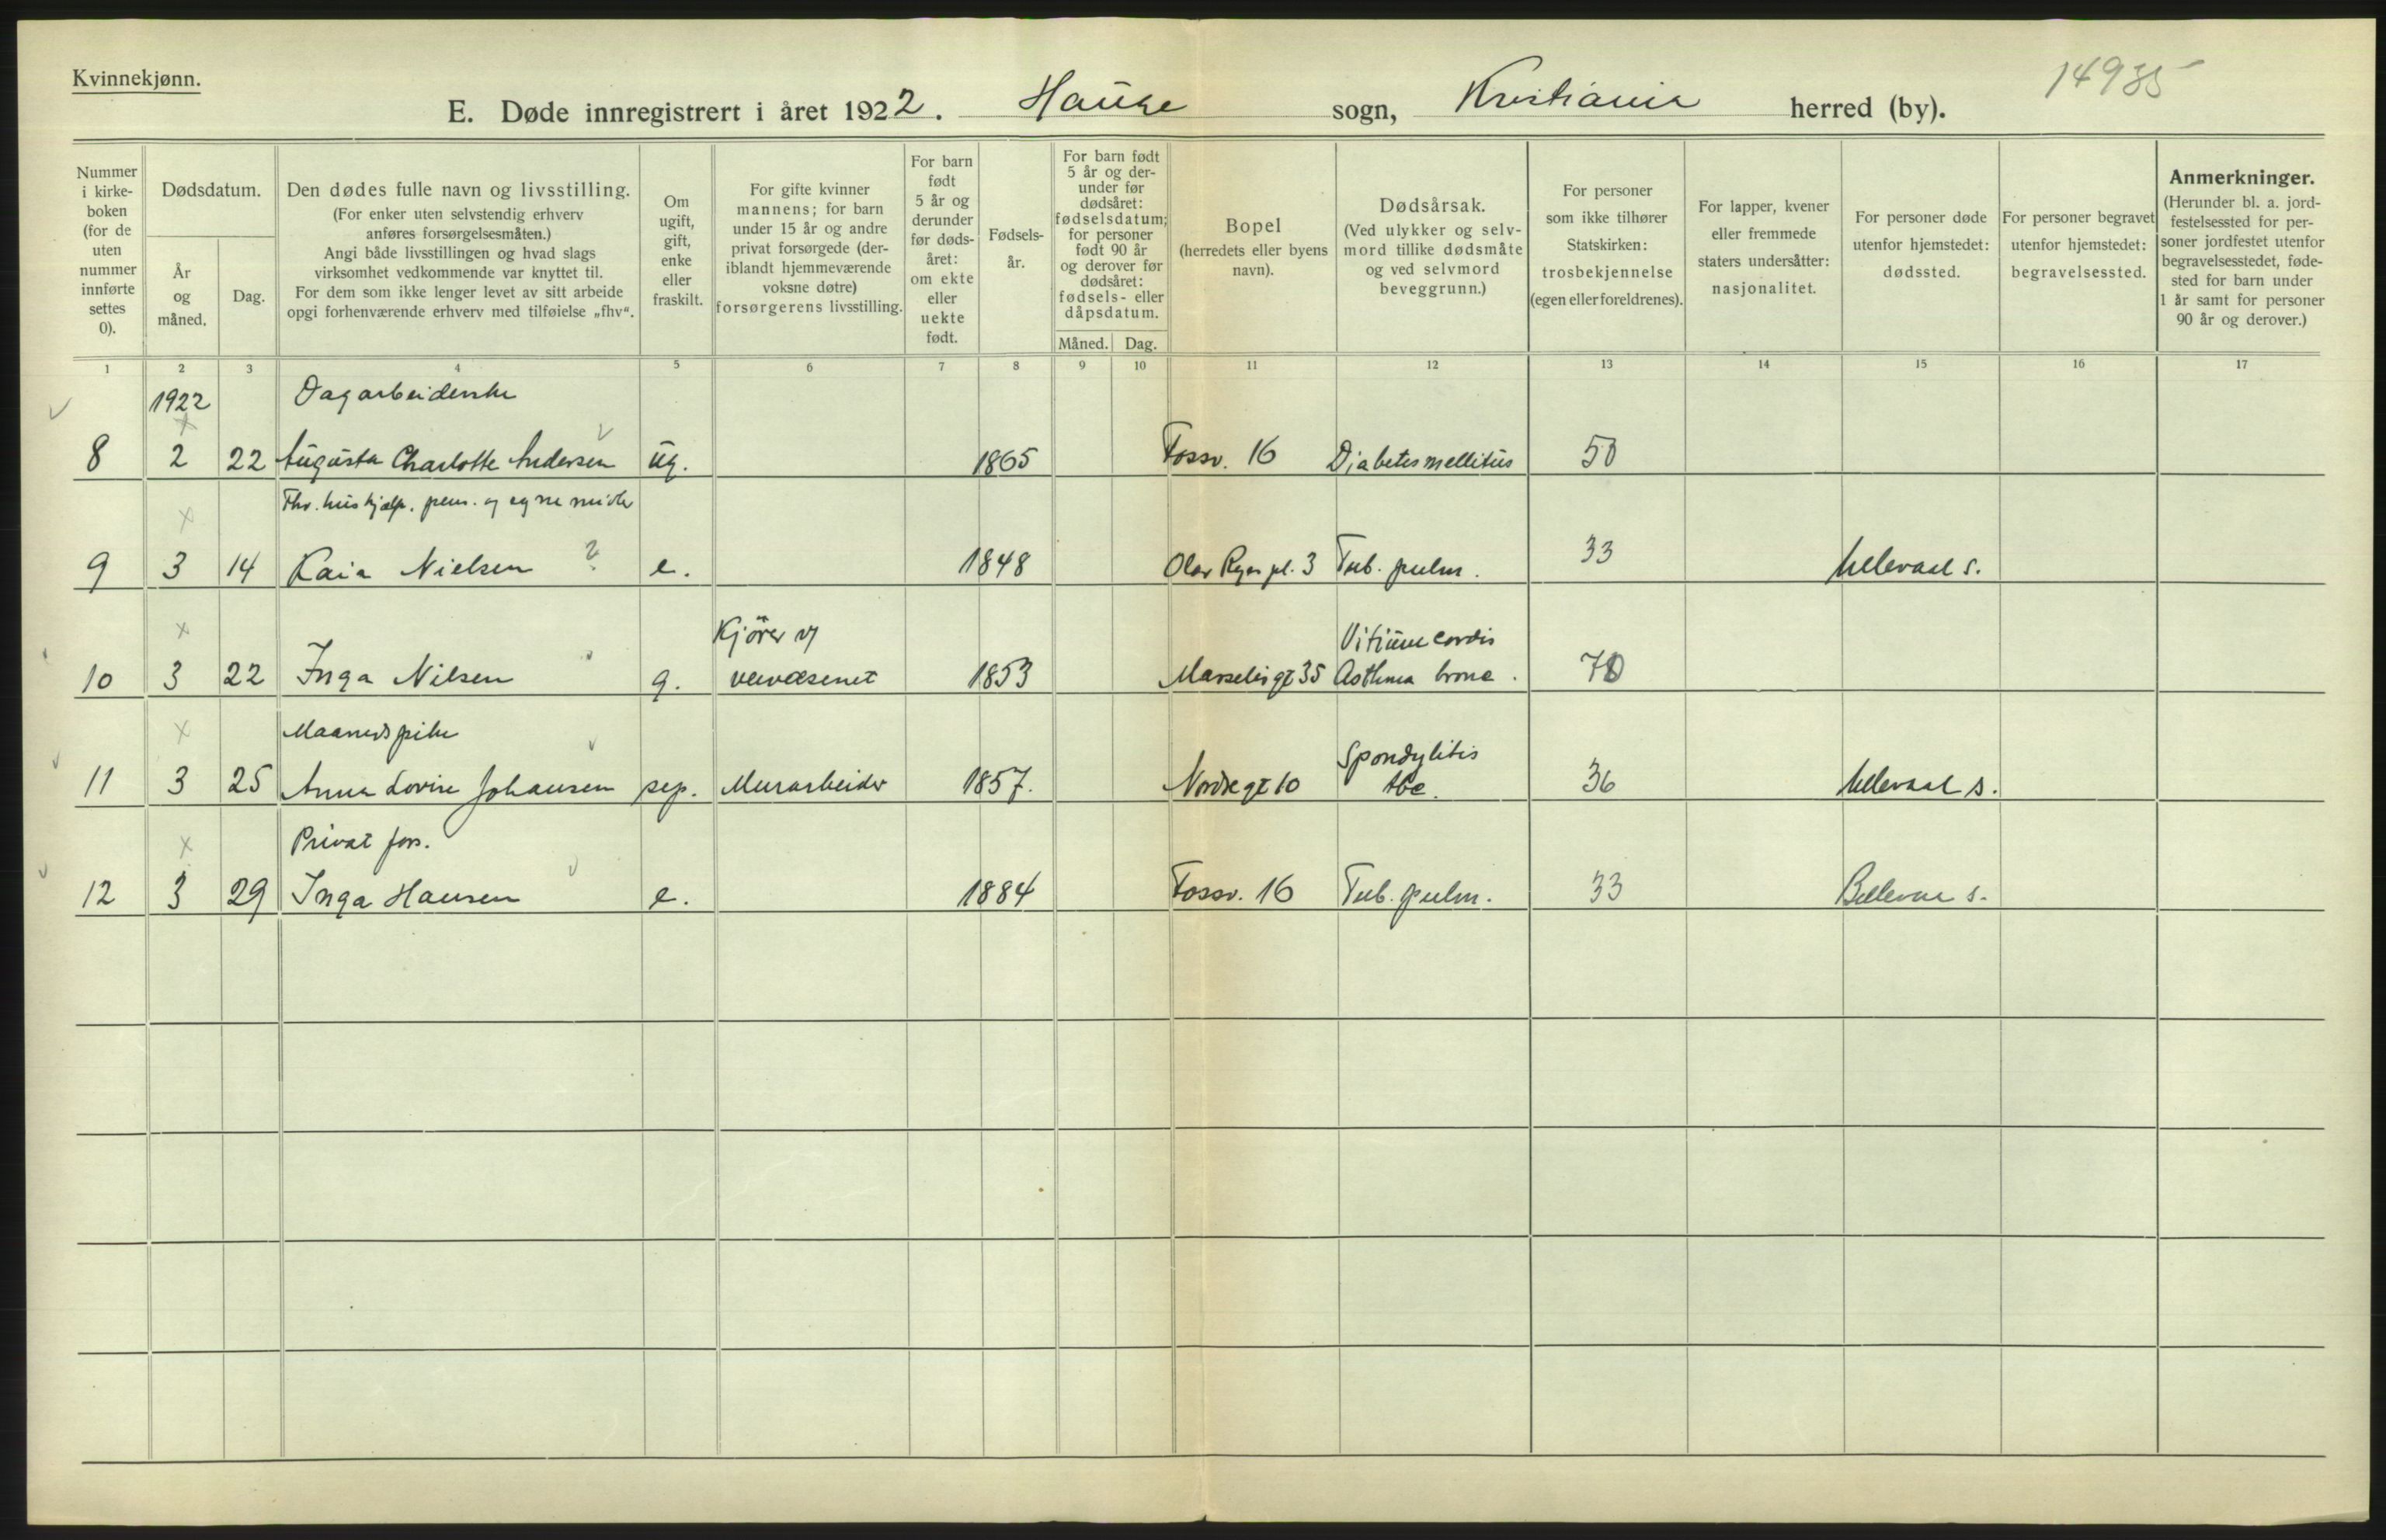 Kvinnekjønn.
14935
E. Døde innregistrert i året 1922. Hauge sogn, Kristiania herred (by).
Nummer i kirke-
boken
(for de
uten
nummer
innførte
settes
0).
Dødsdatum.
År
og
måned.
Dag.
Den dødes fulle navn og livsstilling.
(For enker uten selvstendig erhverv
anføres forsørgelsesmåten.)
Angi både livsstillingen og hvad slags
virksomhet vedkommende var knyttet til.
For dem som ikke lenger levet av sitt arbeide
opgi forhenværende erhverv med tilføielse „fhv“.
Om
ugift,
gift,
enke
eller
fraskilt.
For gifte kvinner
mannens; for barn
under 15 år og andre
privat forsørgede (der-
iblandt hjemmeværende
voksne døtre)
forsørgerens livsstilling.
For barn
født
5 år og
derunder
før døds-
året:
om ekte
eller
uekte
født.
Fødsels-
år.
For barn født
5 år og der-
under før
dødsåret:
fødselsdatum;
for personer
født 90 år
og derover før
dødsåret:
fødsels- eller
dåpsdatum.
Måned. Dag.
Bopel
(herredets eller byens
navn).
Dødsårsak.
(Ved ulykker og selv-
mord tillike dødsmåte
og ved selvmord
beveggrunn.)
For personer
som ikke tilhører
Statskirken:
trosbekjennelse
(egen eller foreldrenes).
For lapper, kvener
eller fremmede
staters undersåtter:
nasjonalitet.
For personer døde
utenfor hjemstedet:
dødssted.
For personer begravet
utenfor hjemstedet:
begravelsessted.
Anmerkninger.
(Herunder bl. a. jord-
festelsessted for per-
soner jordfestet utenfor
begravelsesstedet, føde-
sted for barn under
1 år samt for personer
90 år og derover.)
1 2 3 4 5 6 7 8 9 10 11 12 13 14 15 16 17
1922 Dagarbeiderske
8 2 22 Augusta Charlotte Andersen ug. 1865 Fossv. 16 Diabetes mellitus 50
Fhv. hushjælp. pens. og egne midler
9 3 14 Kaia Nielsen ? e. 1848 Olav Ryes pl. 3 Tub. pulm. 33 Ullevaal s.
Kjører v/ Vitium cordis
10 3 22 Inga Nilsen g. veivæsenet 1853 Marselis gt 35 Asthma bronc. 70
Maanedspike Spondylitis
11 3 25 Anna Lovise Johansen sep. Murarbeider 1857. Nordre gt 10 tbc. 36 Ullevaal s.
Privat fors.
12 3 29 Inga Hansen e. 1884 Fossv. 16 Tub. pulm. 33 s.